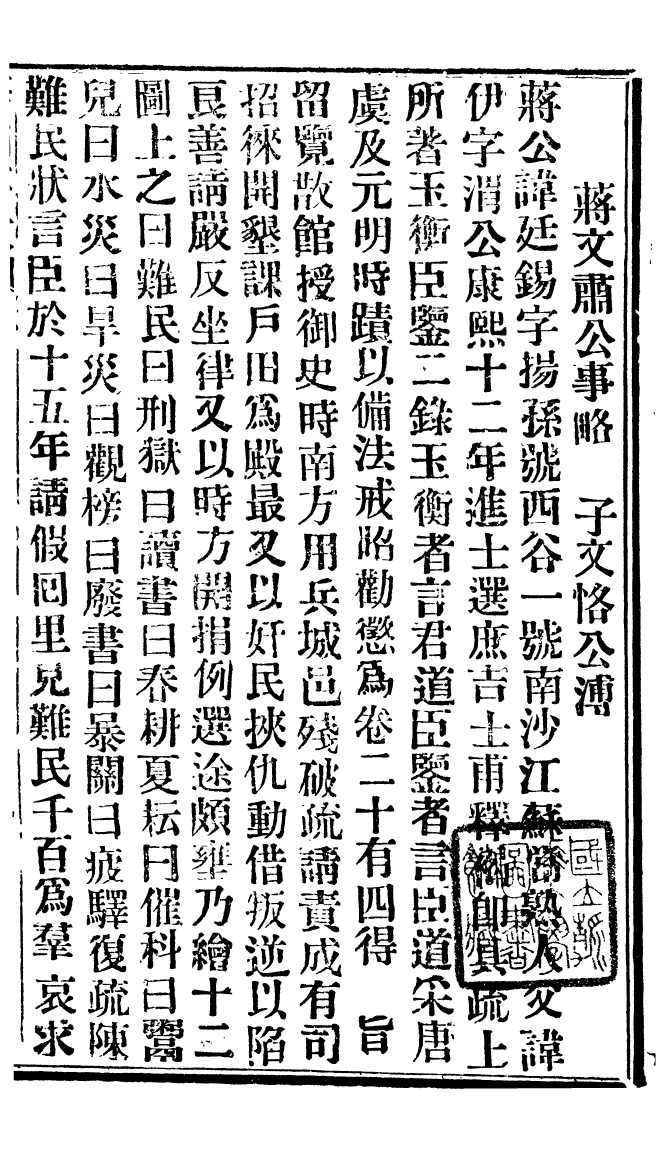 蔣文肅公事略　子文恪公溥
蔣公諱廷錫字揚孫號西谷一號南沙江蘇常熟人父諱
伊字渭公康熙十二年進士選庶吉士甫釋褐卽具疏上
所著玉衡臣鑒二錄玉衡者言君道臣鑒者言臣道采唐
虞及元明時蹟以備法戒昭勸懲爲卷二十有四得　旨
留覽散館授御史時南方用兵城邑殘破疏請責成有司
招徠開墾課戶田爲殿最又以奸民挾仇動借叛逆以陷
良善請嚴反坐律又以時方開捐例選途頗壅乃繪十二
圖上之曰難民曰刑獄曰讀書曰春耕夏耘曰催科曰鬻
兒曰水災曰旱災曰觀榜曰廢書曰暴關曰疲驛復疏陳
難民狀言臣於十五年請假回里見難民千百爲羣哀求